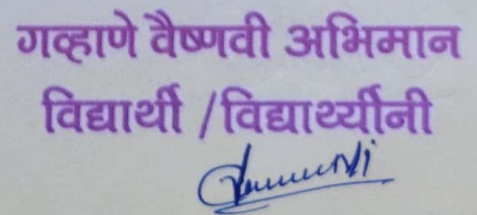 गव्हाणे वैष्णवी अभिमान
विद्यार्थी /विद्यार्थ्यीनी